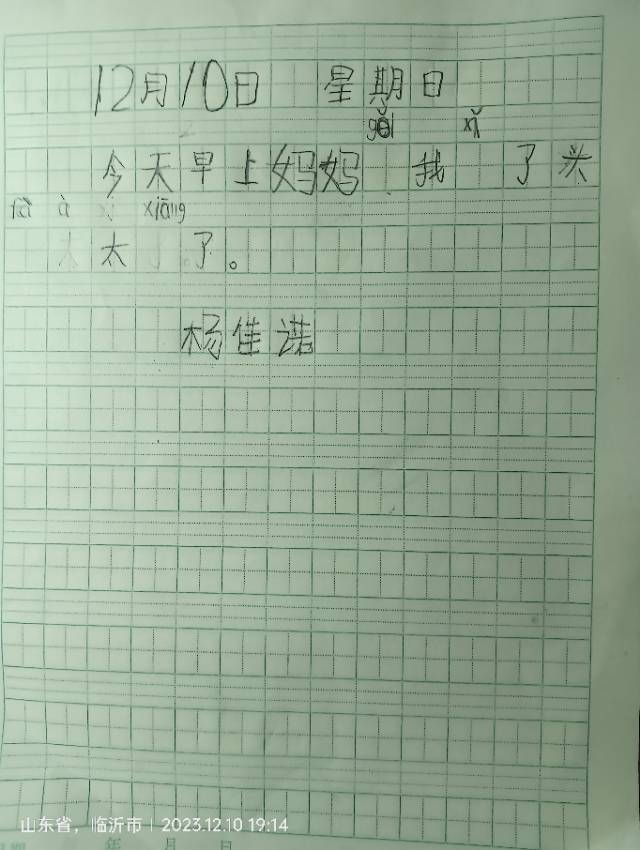 12月10日 星期日
gěi xǐ
今天早上妈妈 我 了头
fà à xiāng
太 了。
杨佳诺
山东省，临沂市 | 2023.12.10 19:14
年 月 日